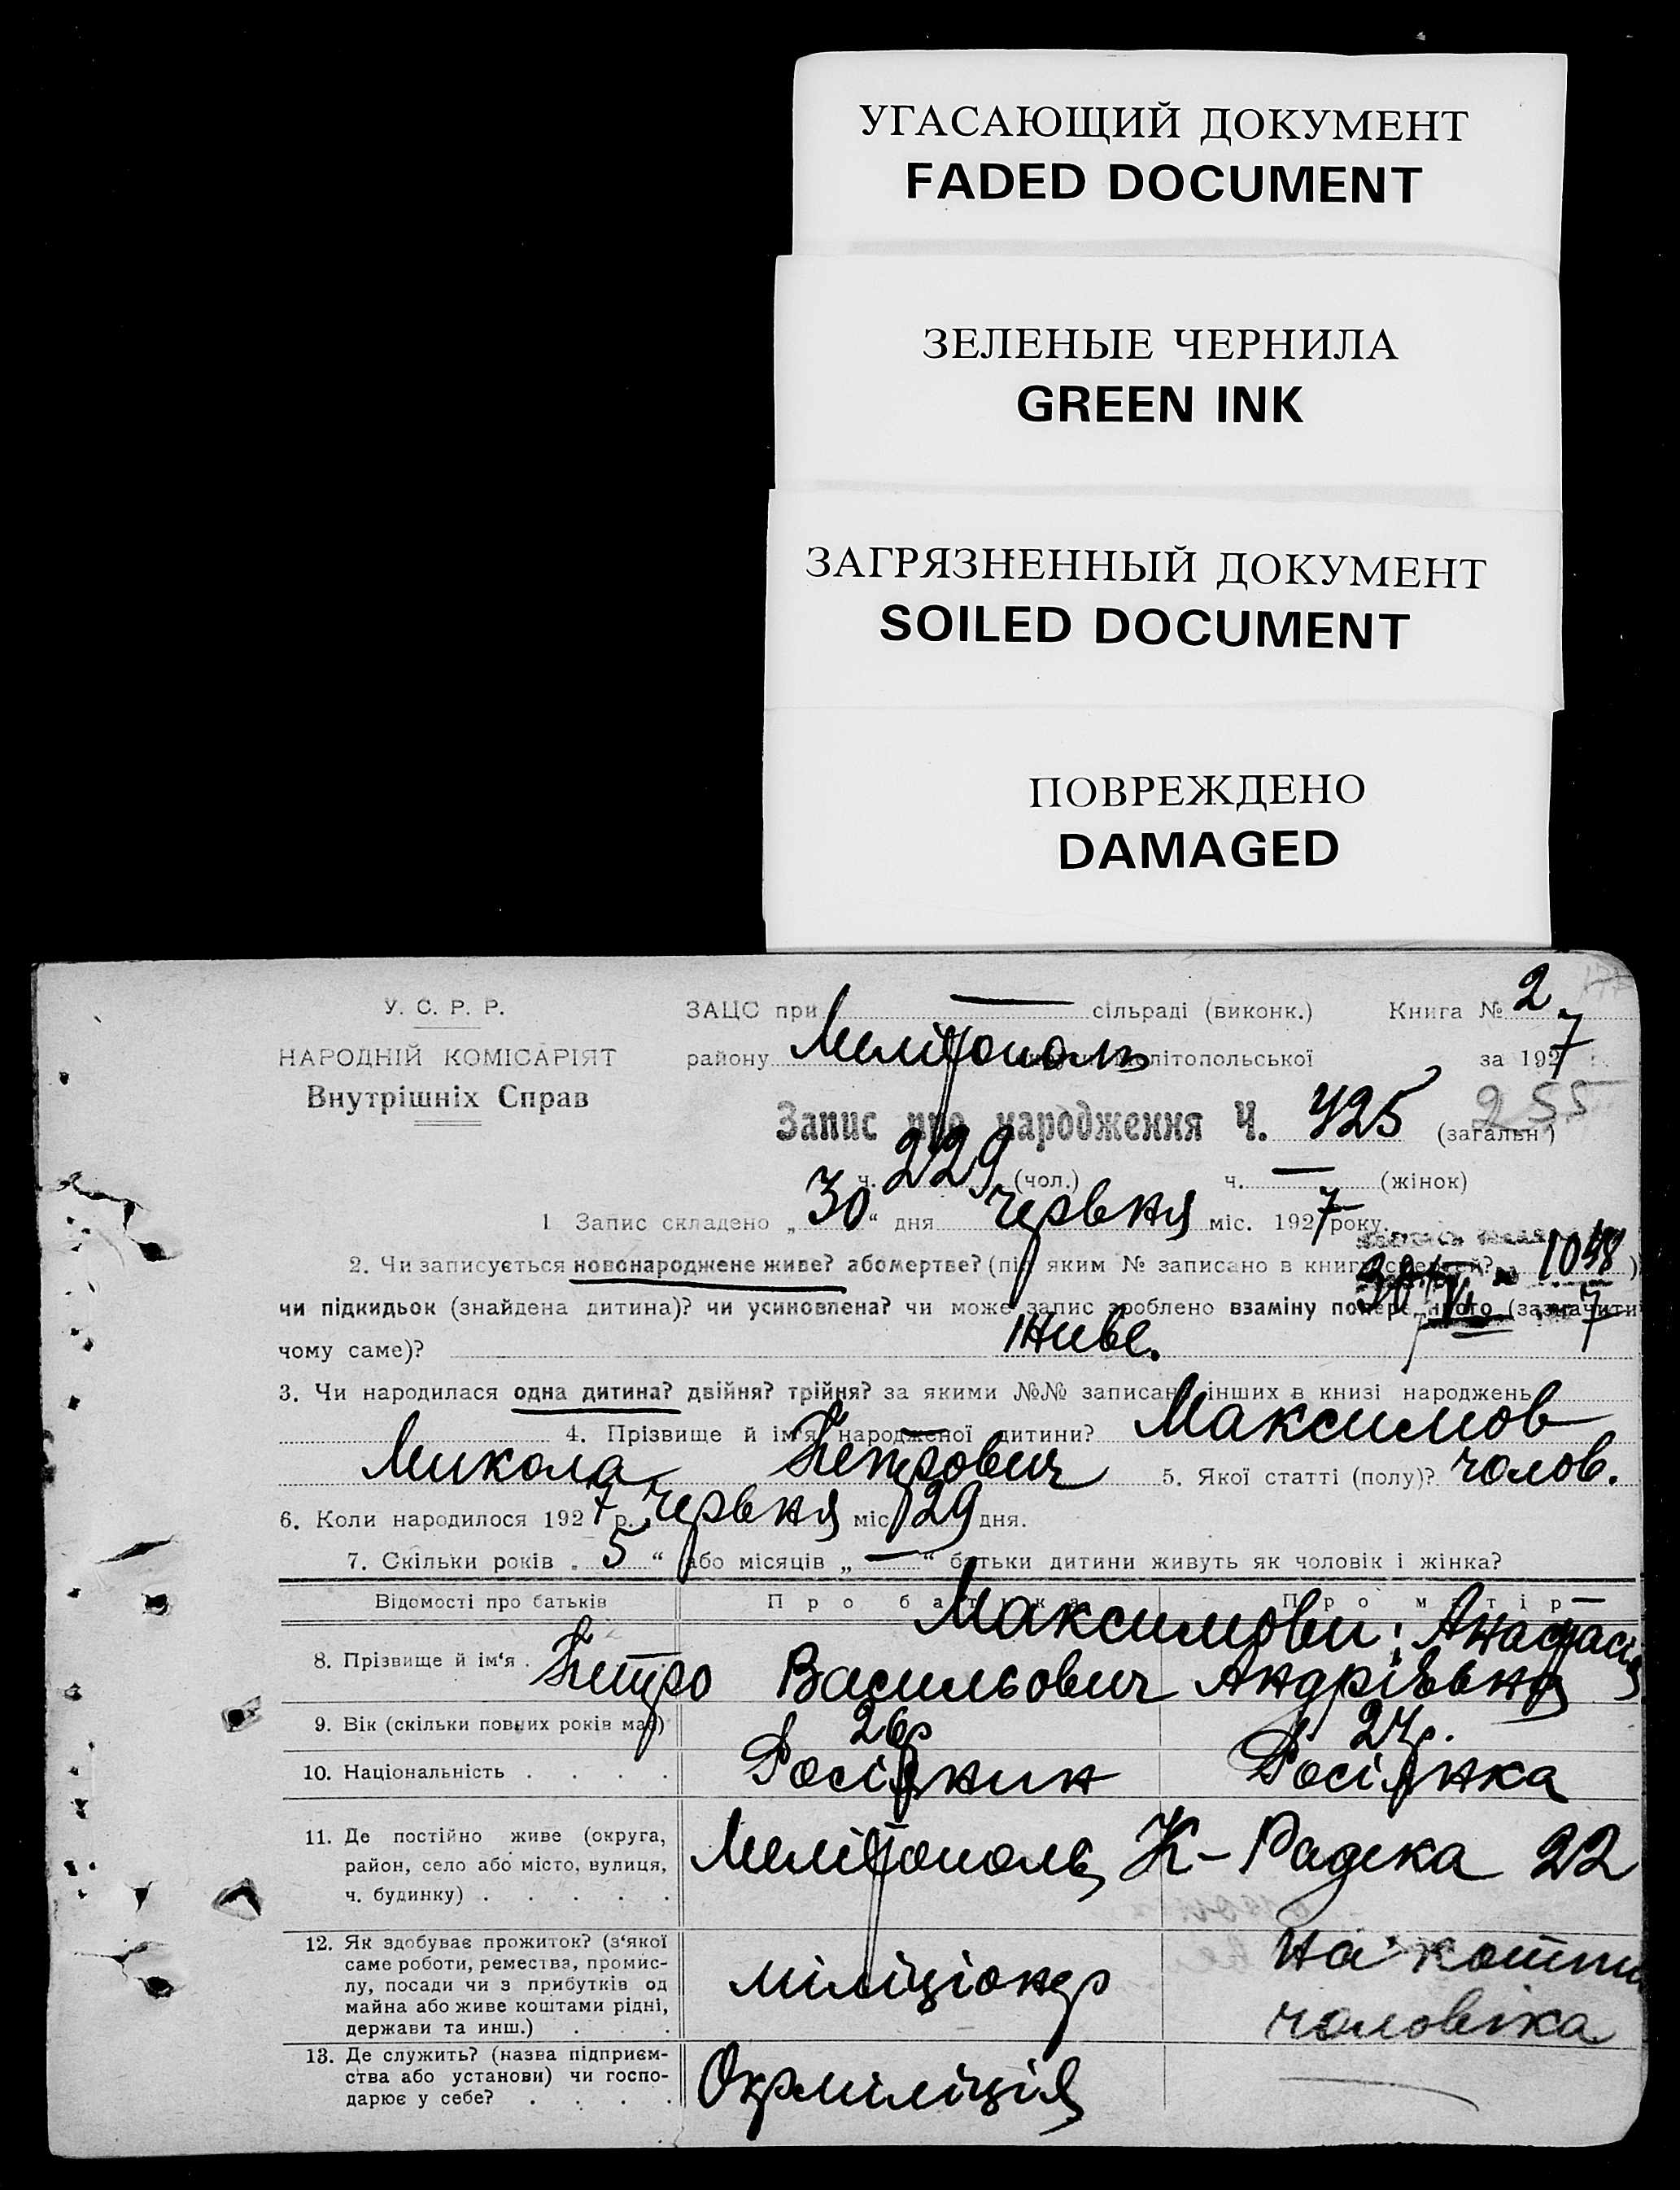 УГАСАЮЩИЙ ДОКУМЕНТ
FADED DOCUMENT
ЗЕЛЕНЫЕ ЧЕРНИЛА
GREEN INK
ЗАГРЯЗНЕННЫЙ ДОКУМЕНТ
SOILED DOCUMENT
ПОВРЕЖДЕНО
DAMAGED
У. С. Р. Р.
НАРОДНІЙ КОМІСАРІЯТ
Внутрішніх Справ
ЗАЦС при — сільраді (виконк.) Книга № 2
району Мелітополь Мелітопольської за 1927
Запис про народження Ч. 425 (загальн) 255
ч. 229 (чол.) ч. — (жінок)
1 Запис складено „30“ дня червня міс. 1927 року.
2. Чи записується новонароджене живе? або мертве? (під яким № записано в книгу смертей? 1048)
чи підкидьок (знайдена дитина)? чи усиновлена? чи може запис зроблено взаміну попереднього (зазначити
чому саме)? Живе.
3. Чи народилася одна дитина? двійня? трійня? за якими №№ записані інших в книзі народжень
— 4. Прізвище й ім'я народженої дитини? Максимов
Микола Петрович 5. Якої статті (полу)? чолов.
6. Коли народилося 1927 р. червня міс 29 дня.
7. Скільки років „5“ або місяців „—“ батьки дитини живуть як чоловік і жінка?
Відомості про батьків Про батька Про матір
8. Прізвище й ім'я . Максимови: Анастасія
Петро Васильович Андріївна
9. Вік (скільки повних років має) 26р 24р.
10. Національність . . . . Росіянин Росіянка
11. Де постійно живе (округа,
район, село або місто, вулиця,
ч. будинку) . . . . . Мелітополь К-Радека 22
12. Як здобуває прожиток? (з'якої
саме роботи, ремества, промис-
лу, посади чи з прибутків од
майна або живе коштами рідні,
держави та инш.) . . . міліціонер на кошти
чоловіка
13. Де служить? (назва підприєм-
ства або установи) чи госпо-
дарює у себе? . . . . Окрміліція